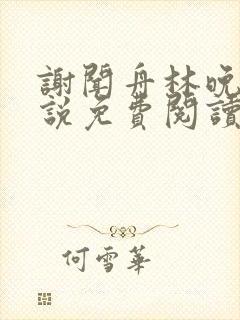 謝聞舟林晚
說免費閱讀
何雪華